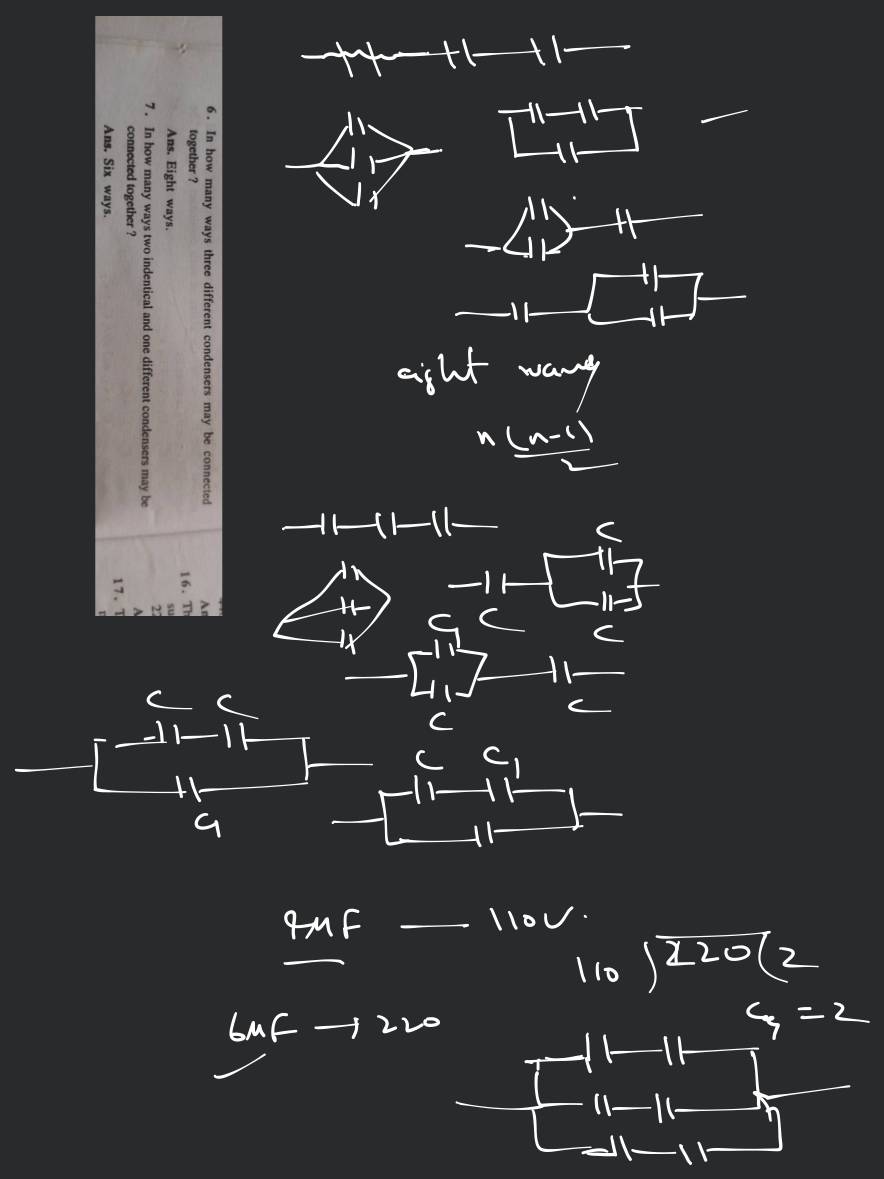 6. In how many ways three different condensers may be connected
together ?
Ans. Eight ways.
7. In how many ways two indentical and one different condensers may be
connected together ?
Ans. Six ways.
16. Th
17. T
eight ways
n(n-1)
2
C
C
C
C
C
C
C C
C C1
4MF — 110V.
110 ) 220 ( 2
= 2
6MF → 220